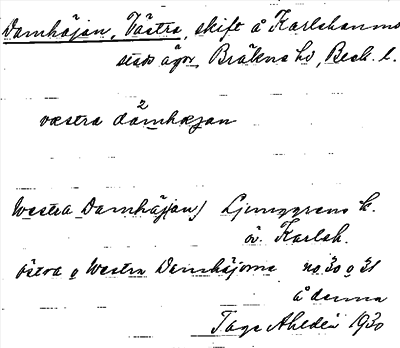 Damhäjan, Västra, skift å Karlshamns
stads ägor, Bräkne hd, Blek. l.
væstra da²mhæjan
Westra Damhäj(an) Ljunggrens k.
öv. Karlsh.
östra o Westra Damhäjorna no 30 o 31
å denna
Tage Ahldén 1930